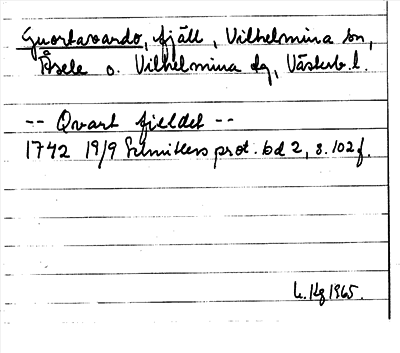 Guortavardo, fjäll, Vilhelmina sn,
Åsele o. Vilhelmina dg, Västerb. l.
-- Qvart fieldet --
1742 19/9 Schnitlers prot. bd 2, s. 102 f.
L. Hg 1965.